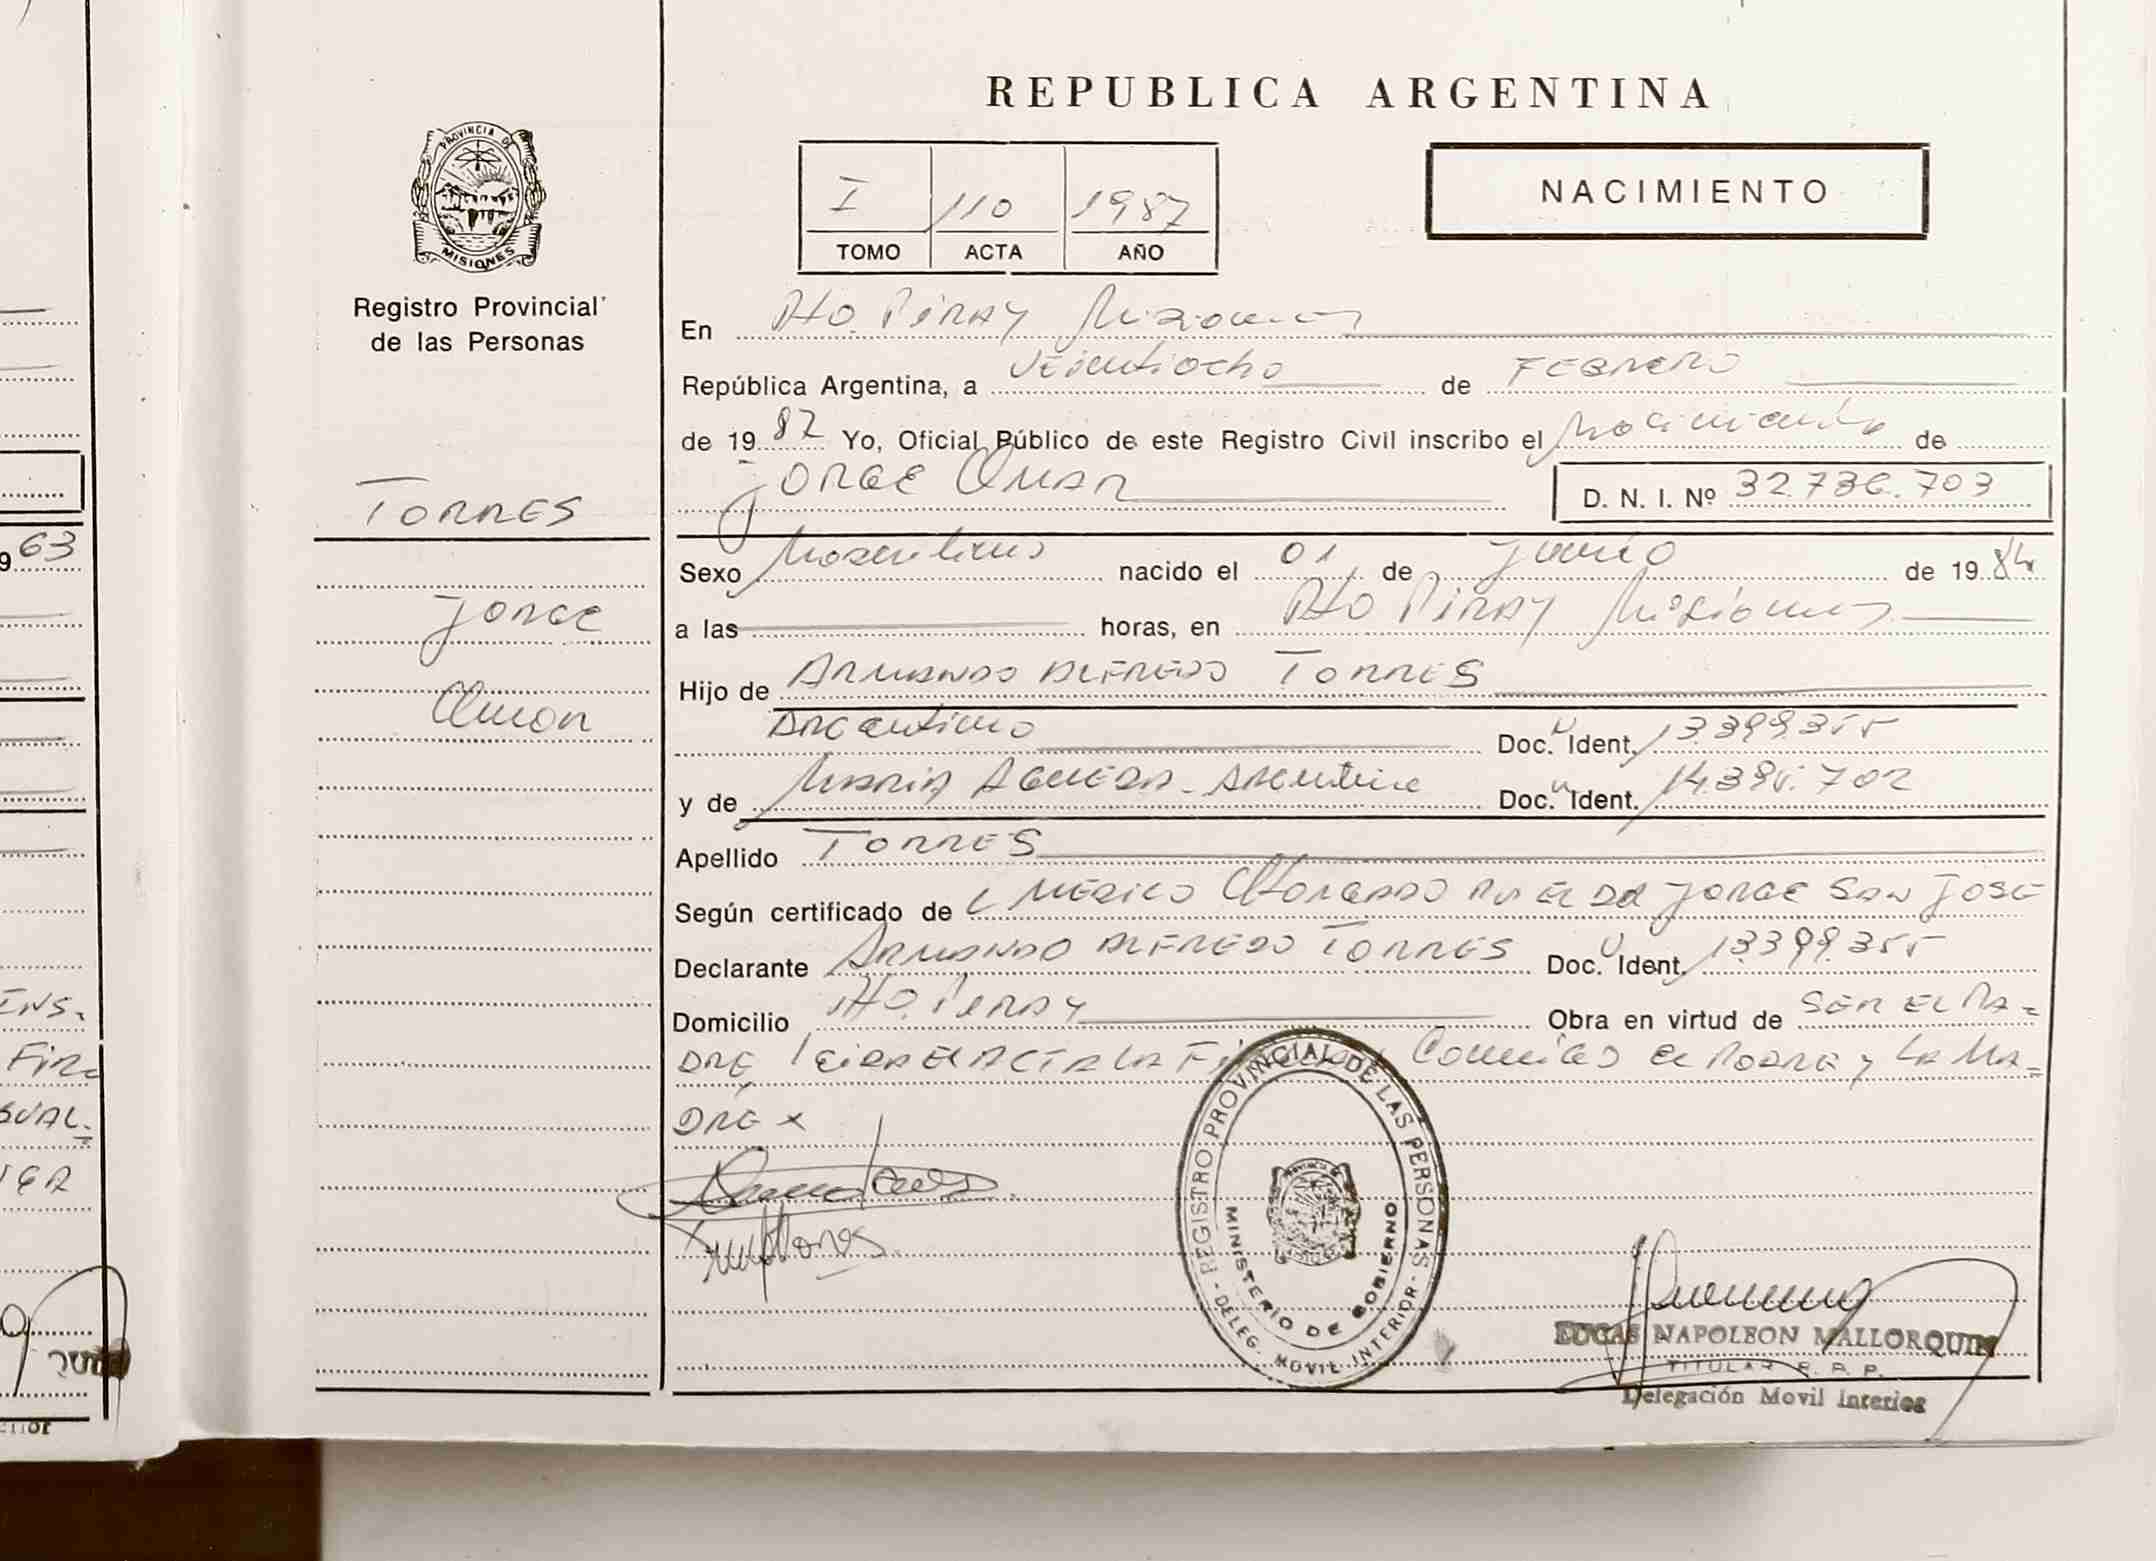 REPUBLICA ARGENTINA
PROVINCIA DE
MISIONES
Registro Provincial
de las Personas
I 110 1987
TOMO ACTA AÑO
NACIMIENTO
En Pto. Piray Misiones
República Argentina, a Veintiocho de FEBRERO
de 19 87 Yo, Oficial Público de este Registro Civil inscribo el Nacimiento de
JORGE OMAR
D. N. I. Nº 32.736.703
TORRES
Jorge
Omar
Sexo Masculino nacido el 01 de Junio de 19 84
a las horas, en Pto Piray Misiones
Hijo de ARMANDO ALFREDO TORRES
ARGentino Doc. Ident. 13.399.355
y de MARIA AGUEDA - ARGentina Doc. Ident. 14.395.702
Apellido TORRES
Según certificado de MEDICO OTORGADO POR EL DR JORGE SAN JOSE
Declarante ARMANDO ALFREDO TORRES Doc. Ident. 13.399.355
Domicilio Pto. Piray Obra en virtud de SER EL PA=
DRE, Leida EL ACTA LA Conmigo el PADRE y LA MA=
DRE x
REGISTRO PROVINCIAL DE LAS PERSONAS
MINISTERIO DE GOBIERNO
DELEG. MOVIL INTERIOR
LUCAS NAPOLEON MALLORQUIN
TITULAR R. P. P.
Delegación Movil Interior
9 63
INS.
FIR
SUAL.